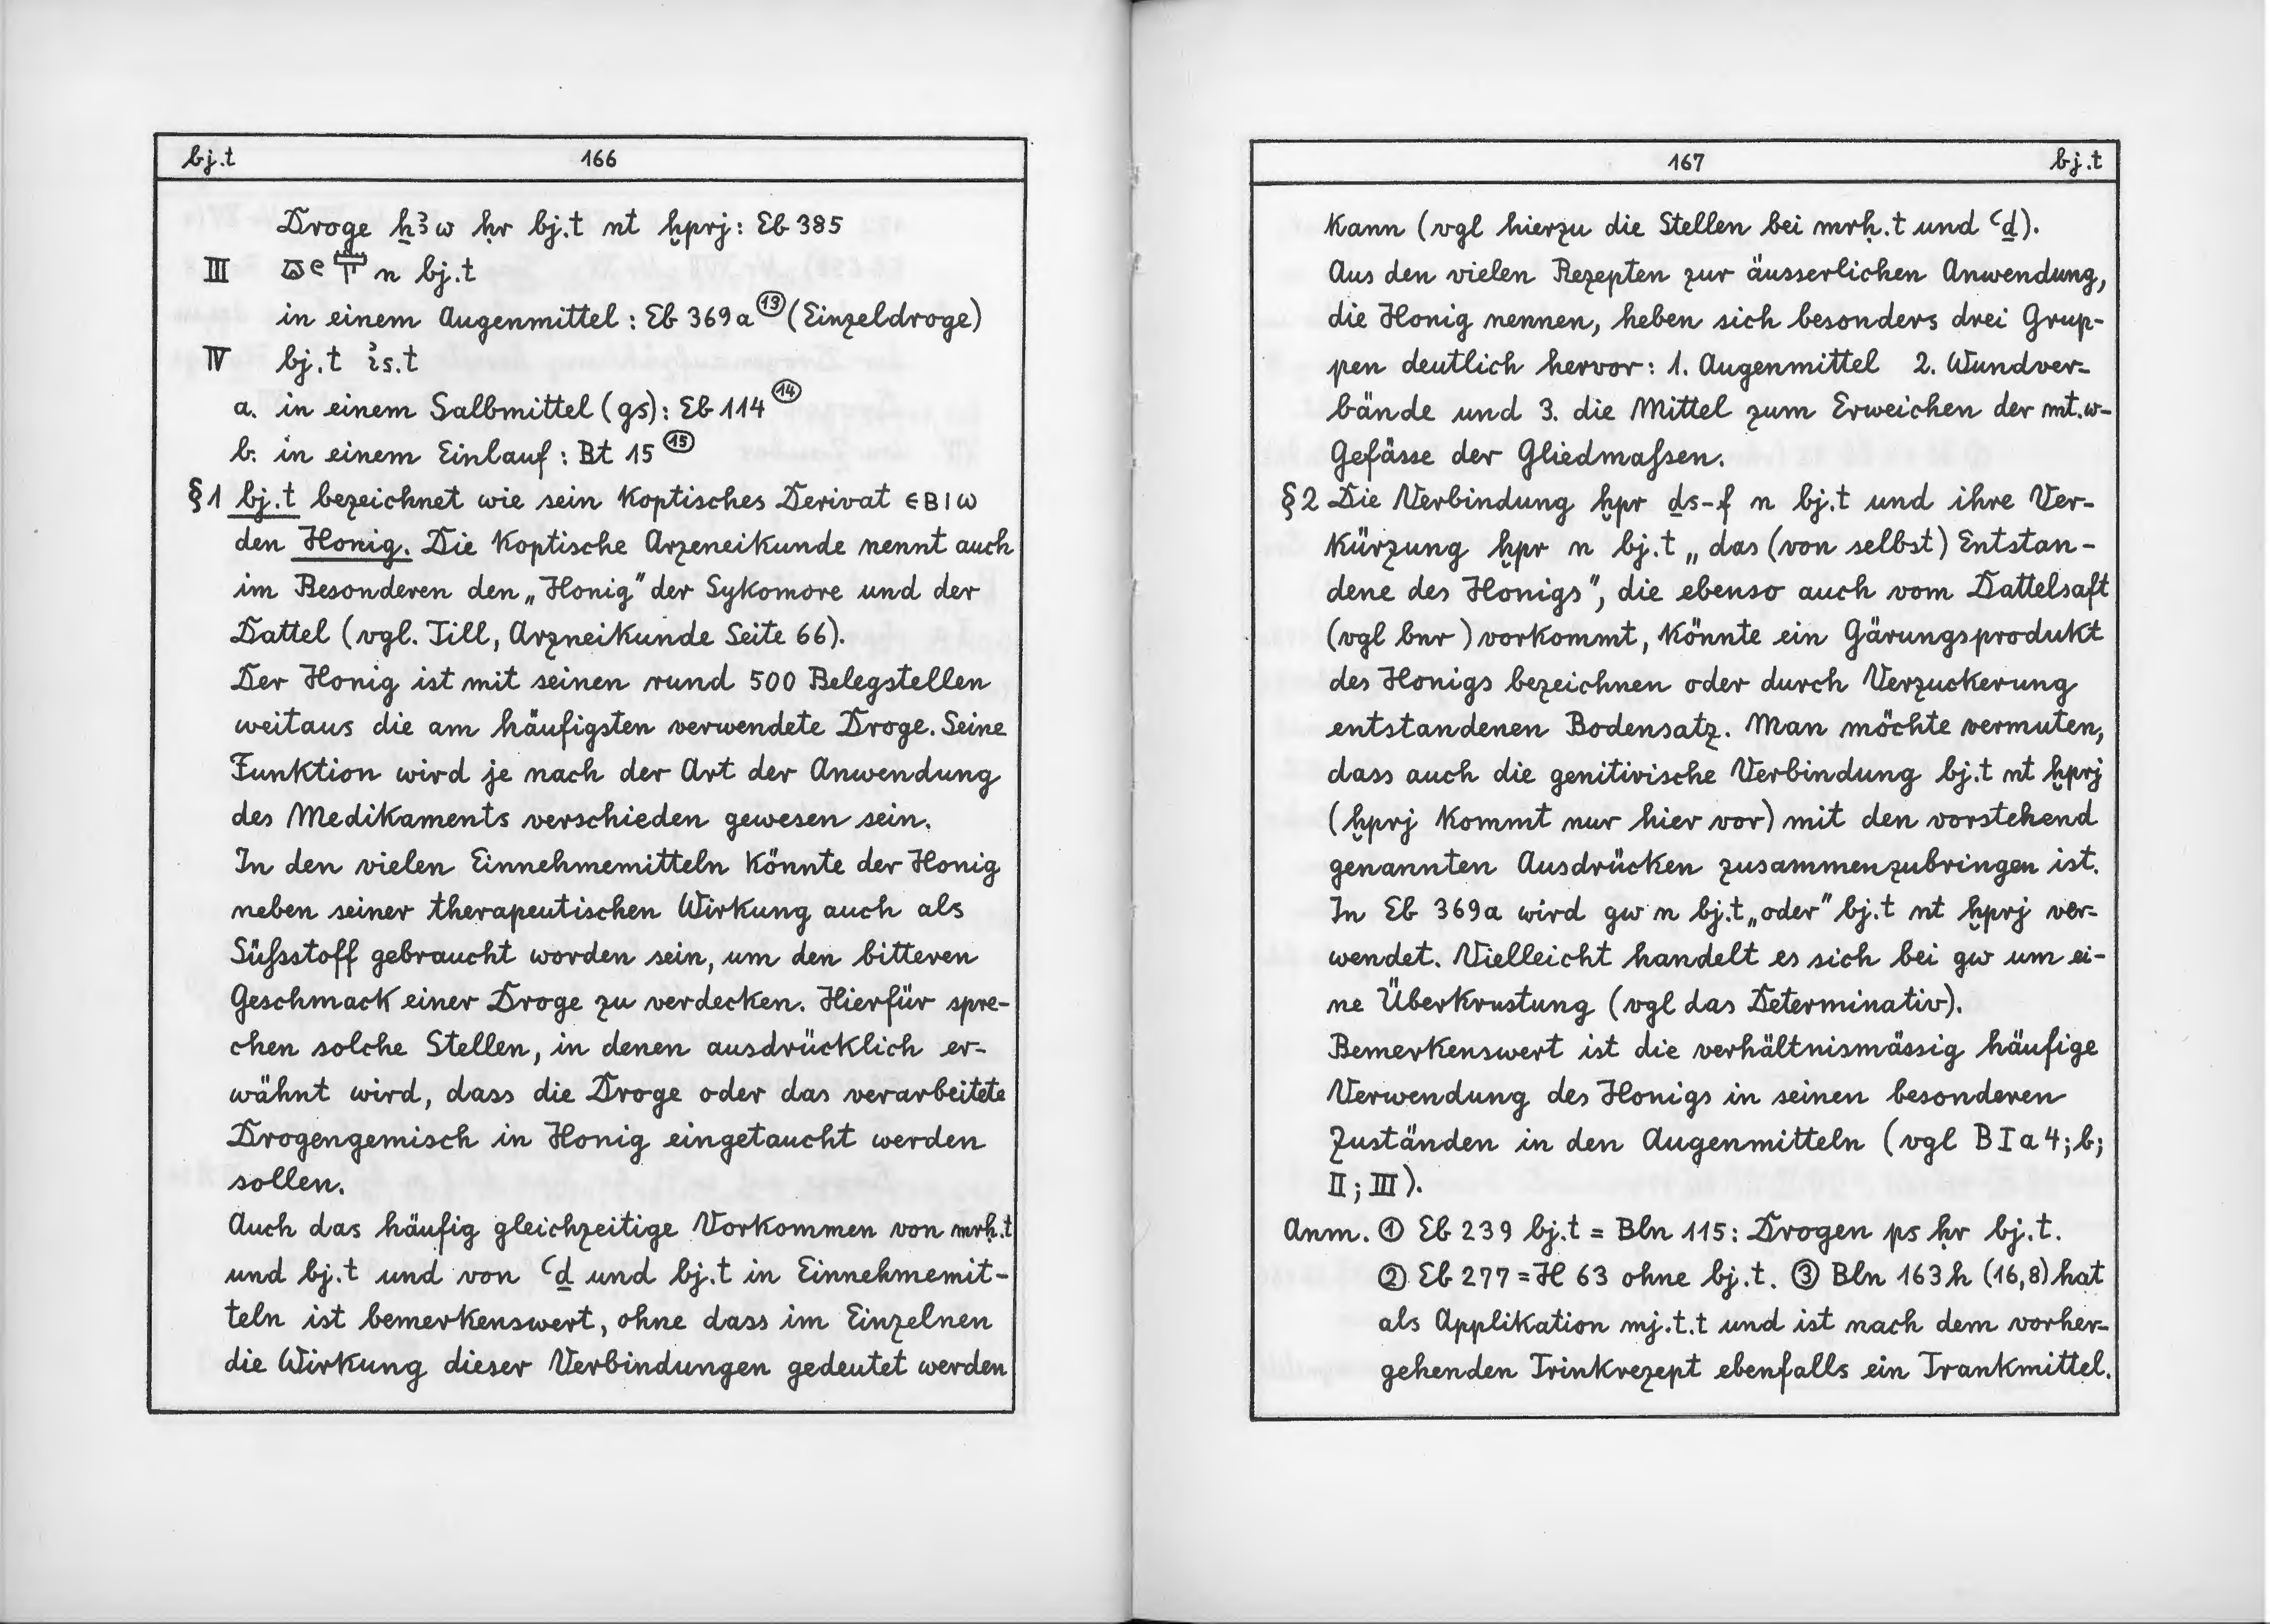 bj.t 166
Droge ẖꜣw ḥr bj.t nt ḫprj: Eb 385
III 𓎼𓏲 n bj.t
in einem Augenmittel: Eb 369a ⑬ (Einzeldroge)
IV bj.t ꞽs.t
a. in einem Salbmittel (gs): Eb 114 ⑭
b. in einem Einlauf: Bt 15 ⑮
§1 bj.t bezeichnet wie sein koptisches Derivat ⲉⲃⲓⲱ
den Honig. Die koptische Arzeneikunde nennt auch
im Besonderen den „Honig" der Sykomore und der
Dattel (vgl. Till, Arzneikunde Seite 66).
Der Honig ist mit seinen rund 500 Belegstellen
weitaus die am häufigsten verwendete Droge. Seine
Funktion wird je nach der Art der Anwendung
des Medikaments verschieden gewesen sein.
In den vielen Einnehmemitteln könnte der Honig
neben seiner therapeutischen Wirkung auch als
Süßstoff gebraucht worden sein, um den bitteren
Geschmack einer Droge zu verdecken. Hierfür spre-
chen solche Stellen, in denen ausdrücklich er-
wähnt wird, dass die Droge oder das verarbeitete
Drogengemisch in Honig eingetaucht werden
sollen.
Auch das häufig gleichzeitige Vorkommen von mrḥ.t
und bj.t und von ꜥḏ und bj.t in Einnehmemit-
teln ist bemerkenswert, ohne dass im Einzelnen
die Wirkung dieser Verbindungen gedeutet werden
167 bj.t
kann (vgl hierzu die Stellen bei mrḥ.t und ꜥḏ).
Aus den vielen Rezepten zur äusserlichen Anwendung,
die Honig nennen, heben sich besonders drei Grup-
pen deutlich hervor: 1. Augenmittel 2. Wundver-
bände und 3. die Mittel zum Erweichen der mt.w-
Gefässe der Gliedmaßen.
§2 Die Verbindung ḫpr ḏs-f n bj.t und ihre Ver-
kürzung ḫpr n bj.t „das (von selbst) Entstan-
dene des Honigs", die ebenso auch vom Dattelsaft
(vgl bnr) vorkommt, könnte ein Gärungsprodukt
des Honigs bezeichnen oder durch Verzuckerung
entstandenen Bodensatz. Man möchte vermuten,
dass auch die genitivische Verbindung bj.t nt ḫprj
(ḫprj kommt nur hier vor) mit den vorstehend
genannten Ausdrücken zusammenzubringen ist.
In Eb 369a wird gw n bj.t „oder" bj.t nt ḫprj ver-
wendet. Vielleicht handelt es sich bei gw um ei-
ne Überkrustung (vgl das Determinativ).
Bemerkenswert ist die verhältnismässig häufige
Verwendung des Honigs in seinen besonderen
Zuständen in den Augenmitteln (vgl B I a 4; b;
II; III).
Anm. ① Eb 239 bj.t = Bln 115: Drogen ps ḥr bj.t.
② Eb 277 = H 63 ohne bj.t. ③ Bln 163h (16,8) hat
als Applikation mj.t.t und ist nach dem vorher-
gehenden Trinkrezept ebenfalls ein Trankmittel.